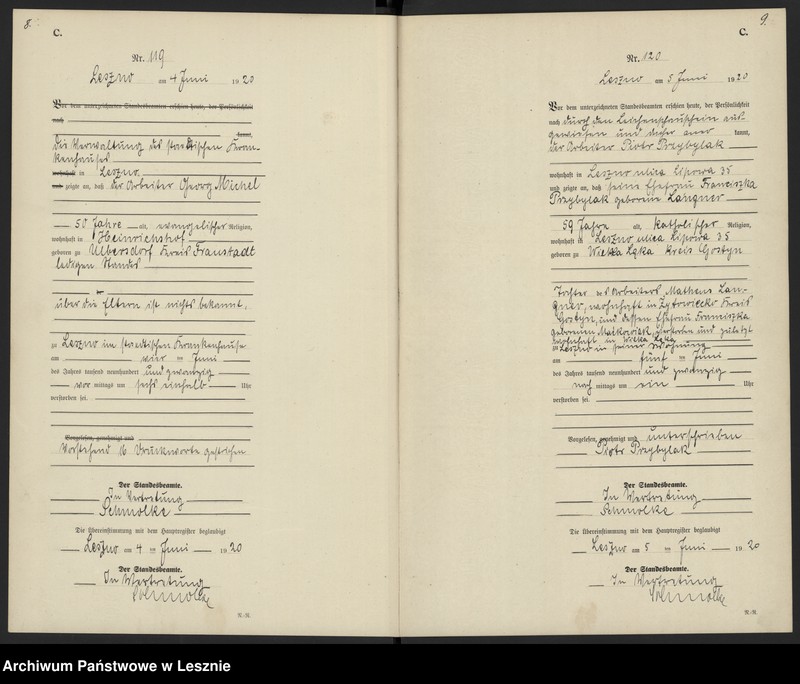 8.
C.
Nr. 119
Leszno am 4 Juni 1920
Vor dem unterzeichneten Standesbeamten erschien heute, der Persönlichkeit
nach
kannt,
die Verwaltung des staedtischen Kran-
kenhauses
wohnhaft in Leszno
und zeigte an, daß der Arbeiter Georg Michel
50 Jahre alt, evangelischer Religion,
wohnhaft in Heinrichshof
geboren zu Ulbersdorf Kreis Fraustadt
ledigen Standes
über die Eltern ist nichts bekannt,
zu Leszno im staedtischen Krankenhause
am vier ten Juni
des Jahres tausend neunhundert und zwanzig
vor mittags um sechs einhalb Uhr
verstorben sei.
Vorgelesen, genehmigt und
Vorstehend 6 Druckworte gestrichen
Der Standesbeamte.
In Vertretung
Schmolke
Die Übereinstimmung mit dem Hauptregister beglaubigt
Leszno am 4 ten Juni 1920
Der Standesbeamte.
In Vertretung
Schmolke
R.-R.
9.
C.
Nr. 120
Leszno am 5 Juni 1920
Vor dem unterzeichneten Standesbeamten erschien heute, der Persönlichkeit
nach durch den Leichenschauschein aus-
gewiesen und daher aner kannt,
der Arbeiter Piotr Przybylak
wohnhaft in Leszno ulica Lipowa 35
und zeigte an, daß seine Ehefrau Franciszka
Przybylak geborene Langner
59 Jahre alt, katholischer Religion,
wohnhaft in Leszno ulica Lipowa 35
geboren zu Wielka Łęka Kreis Gostyn
Tochter des Arbeiters Matheus Lan-
gner, wohnhaft in Kreis
Gostyn, und dessen Ehefrau Franciszka
geborenen Maćkowiak, verstorben und zuletzt
wohnhaft in Wielka Łęka
zu Leszno in seiner Wohnung
am fünf ten Juni
des Jahres tausend neunhundert und zwanzig
nach mittags um ein Uhr
verstorben sei.
Vorgelesen, genehmigt und unterschrieben
Piotr Przybylak
Der Standesbeamte.
In Vertretung
Schmolke
Die Übereinstimmung mit dem Hauptregister beglaubigt
Leszno am 5 ten Juni 1920
Der Standesbeamte.
In Vertretung
Schmolke
R.-R.
Archiwum Państwowe w Lesznie